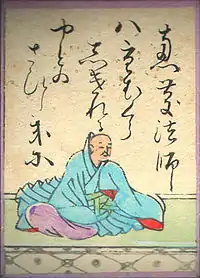 恵慶法師
八重むくら
しけれる
やとの
さひしきに